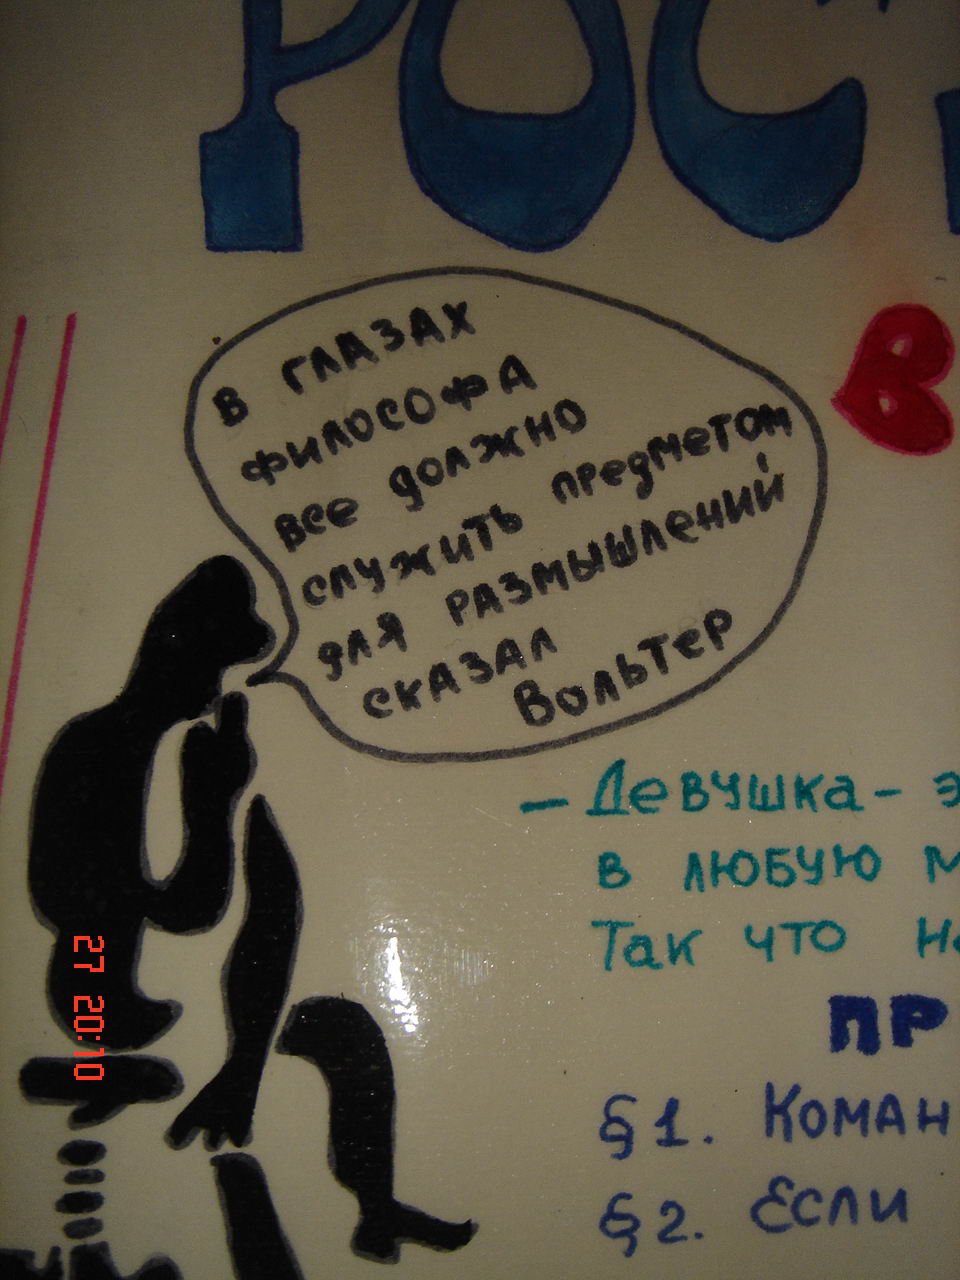 РОСТ
В ГЛАЗАХ
ФИЛОСОФА
ВСЕ ДОЛЖНО
СЛУЖИТЬ ПРЕДМЕТОМ
ДЛЯ РАЗМЫШЛЕНИЙ
СКАЗАЛ
ВОЛЬТЕР
В
— Девчшка - э
в любую м
Так что не
ПР
§1. Коман
§2. Если
27 20:10